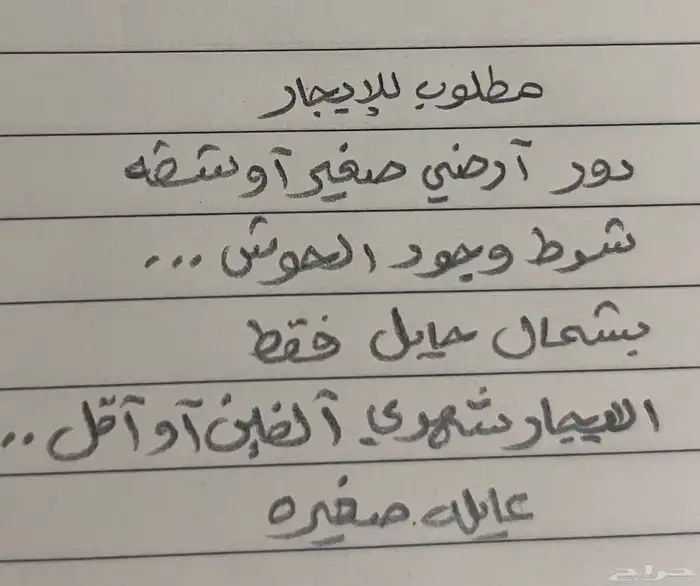 مطلوب للإيجار
دور آرضي صغير آو شقه
شرط وجود الحوش ...
بشمال حايل فقط
الايجار شهري آلفين آو آقل ..
عايله صغيره
حراج